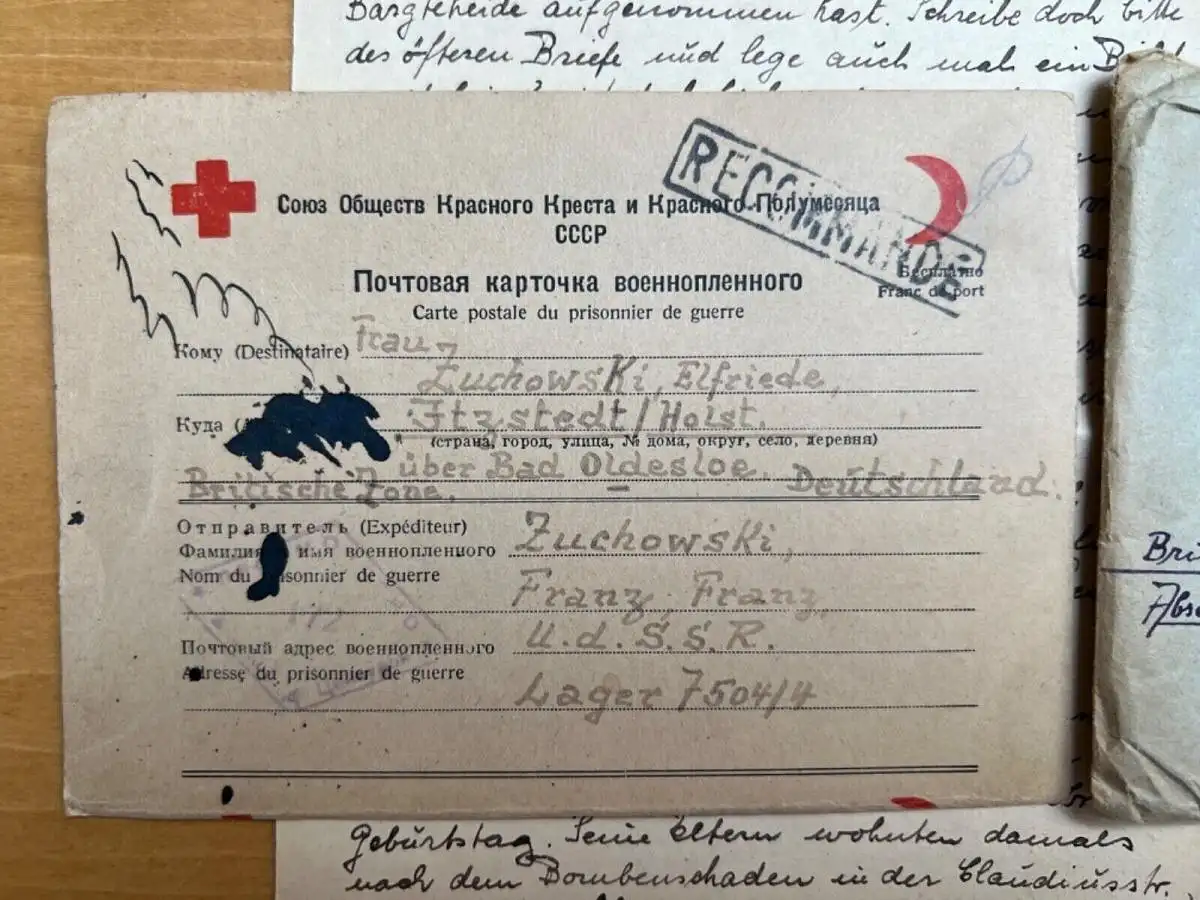 Bargteheide aufgenommen hast. Schreibe doch bitte
des öfteren Briefe und lege auch mal ein
RECOMMANDÉ
Союз Обществ Красного Креста и Красного Полумесяца
СССР
Бесплатно
Franc de port
Почтовая карточка военнопленного
Carte postale du prisonnier de guerre
Кому (Destinataire) Frau
Zuchowski, Elfriede,
Куда Itzstedt/Holst.
(страна, город, улица, № дома, округ, село, деревня)
über Bad Oldesloe.
Britische Zone. Deutschland.
Отправитель (Expéditeur)
Фамилия и имя военнопленного Zuchowski,
Nom du prisonnier de guerre
Franz, Franz,
Почтовый адрес военнопленного U.d.S.S.R.
Adresse du prisonnier de guerre
Lager 7504/4
Geburtstag. Seine Eltern wohnten damals
nach dem Bombenschaden in der Claudiusstr.